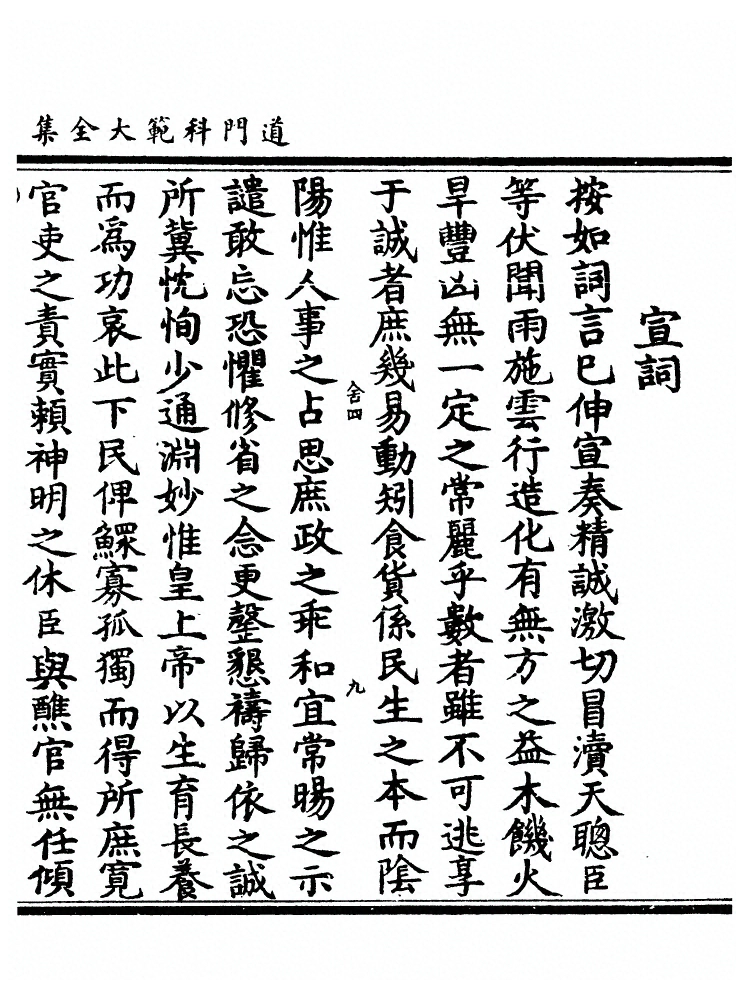 道門科範大全集
宣詞
按如詞言已伸宣奏精誠激切冒瀆天聰臣
等伏聞雨施雲行造化有無方之益木饑火
旱豐凶無一定之常麗乎數者雖不可逃享
于誠者庶幾易動矧食貨係民生之本而陰
舍四
九
陽惟人事之占思庶政之乖和宜常暘之示
譴敢忘恐懼修省之念更罄懇禱歸依之誠
所冀忱恂少通淵妙惟皇上帝以生育長養
而爲功哀此下民俾鰥寡孤獨而得所庶寬
官吏之責實賴神明之休臣與醮官無任傾